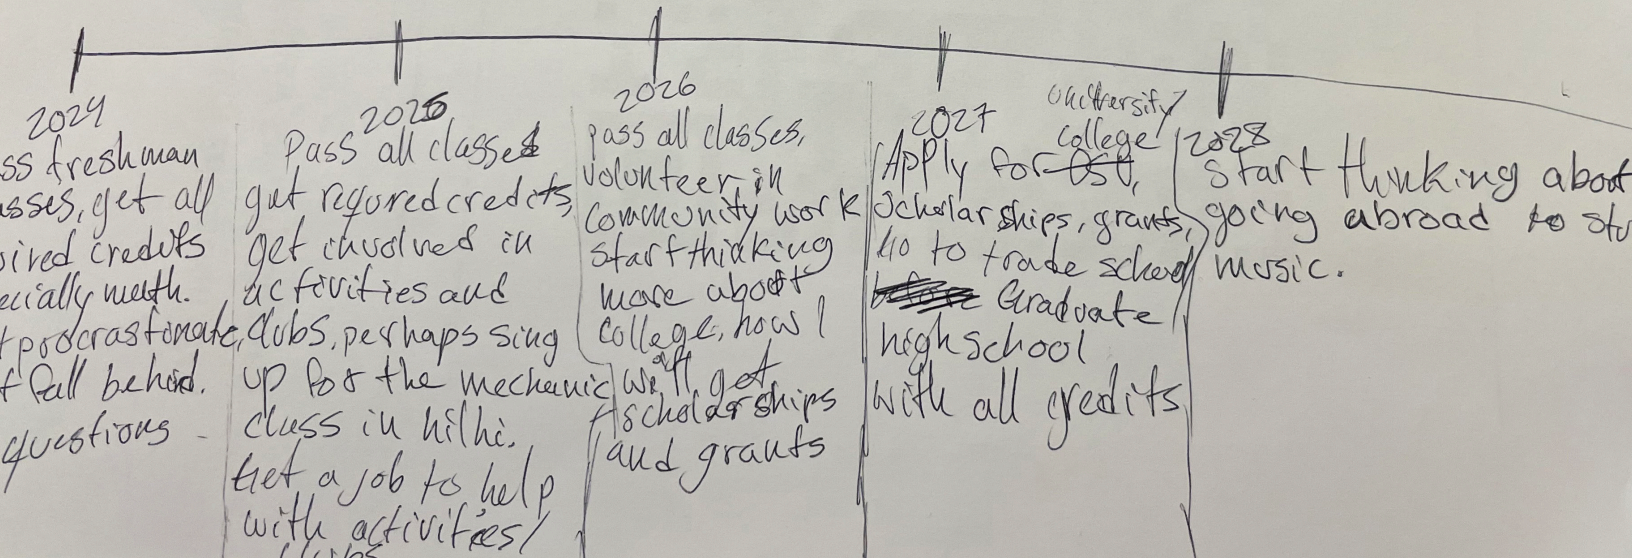 2024
ss freshman
asses, get all
uired credits
ecially math.
t procrastonate,
t fall behind.
questions
2025
Pass all classes
gut requred credits,
get involved in
activities and
clubs, perhaps sing
up for the mechanic
class in hilhi.
Get a job to help
with activities/
clubs
2026
pass all classes,
volunteer, in
community work
start thinking
more about
college, how I
will get
scholarships
and grants
2027
University/
college
Apply for OSU,
scholarships, grants,
Go to trade school
Graduate
highschool
with all credits
2028
start thinking about
going abroad to stu
music.